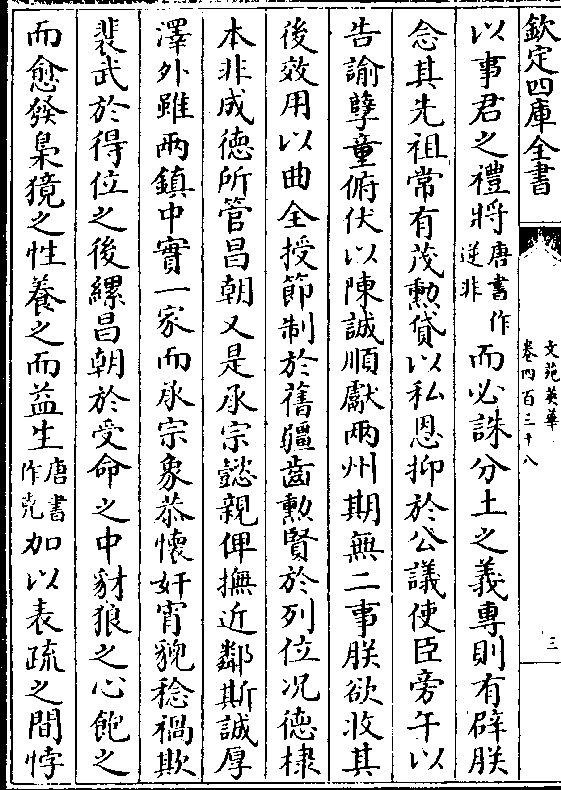 欽定四庫全書
文苑英華
卷四百三十八
三
以事君之禮將唐書作逆非而必誅分土之義專則有辟朕
念其先祖常有茂勲貸以私恩抑於公議使臣旁午以
告諭孽童俯伏以陳誠順獻兩州期無二事朕欲收其
後效用以曲全授節制於舊疆齒勲賢於列位况德棣
本非成徳所管昌朝又是承宗懿親俾撫近鄰斯誠厚
澤外雖兩鎮中實一家而承宗象恭懷奸宵貌稔禍欺
裴武於得位之後縲昌朝於受命之中豺狼之心飽之
而愈發梟獍之性養之而益生唐書作克加以表疏之間悖